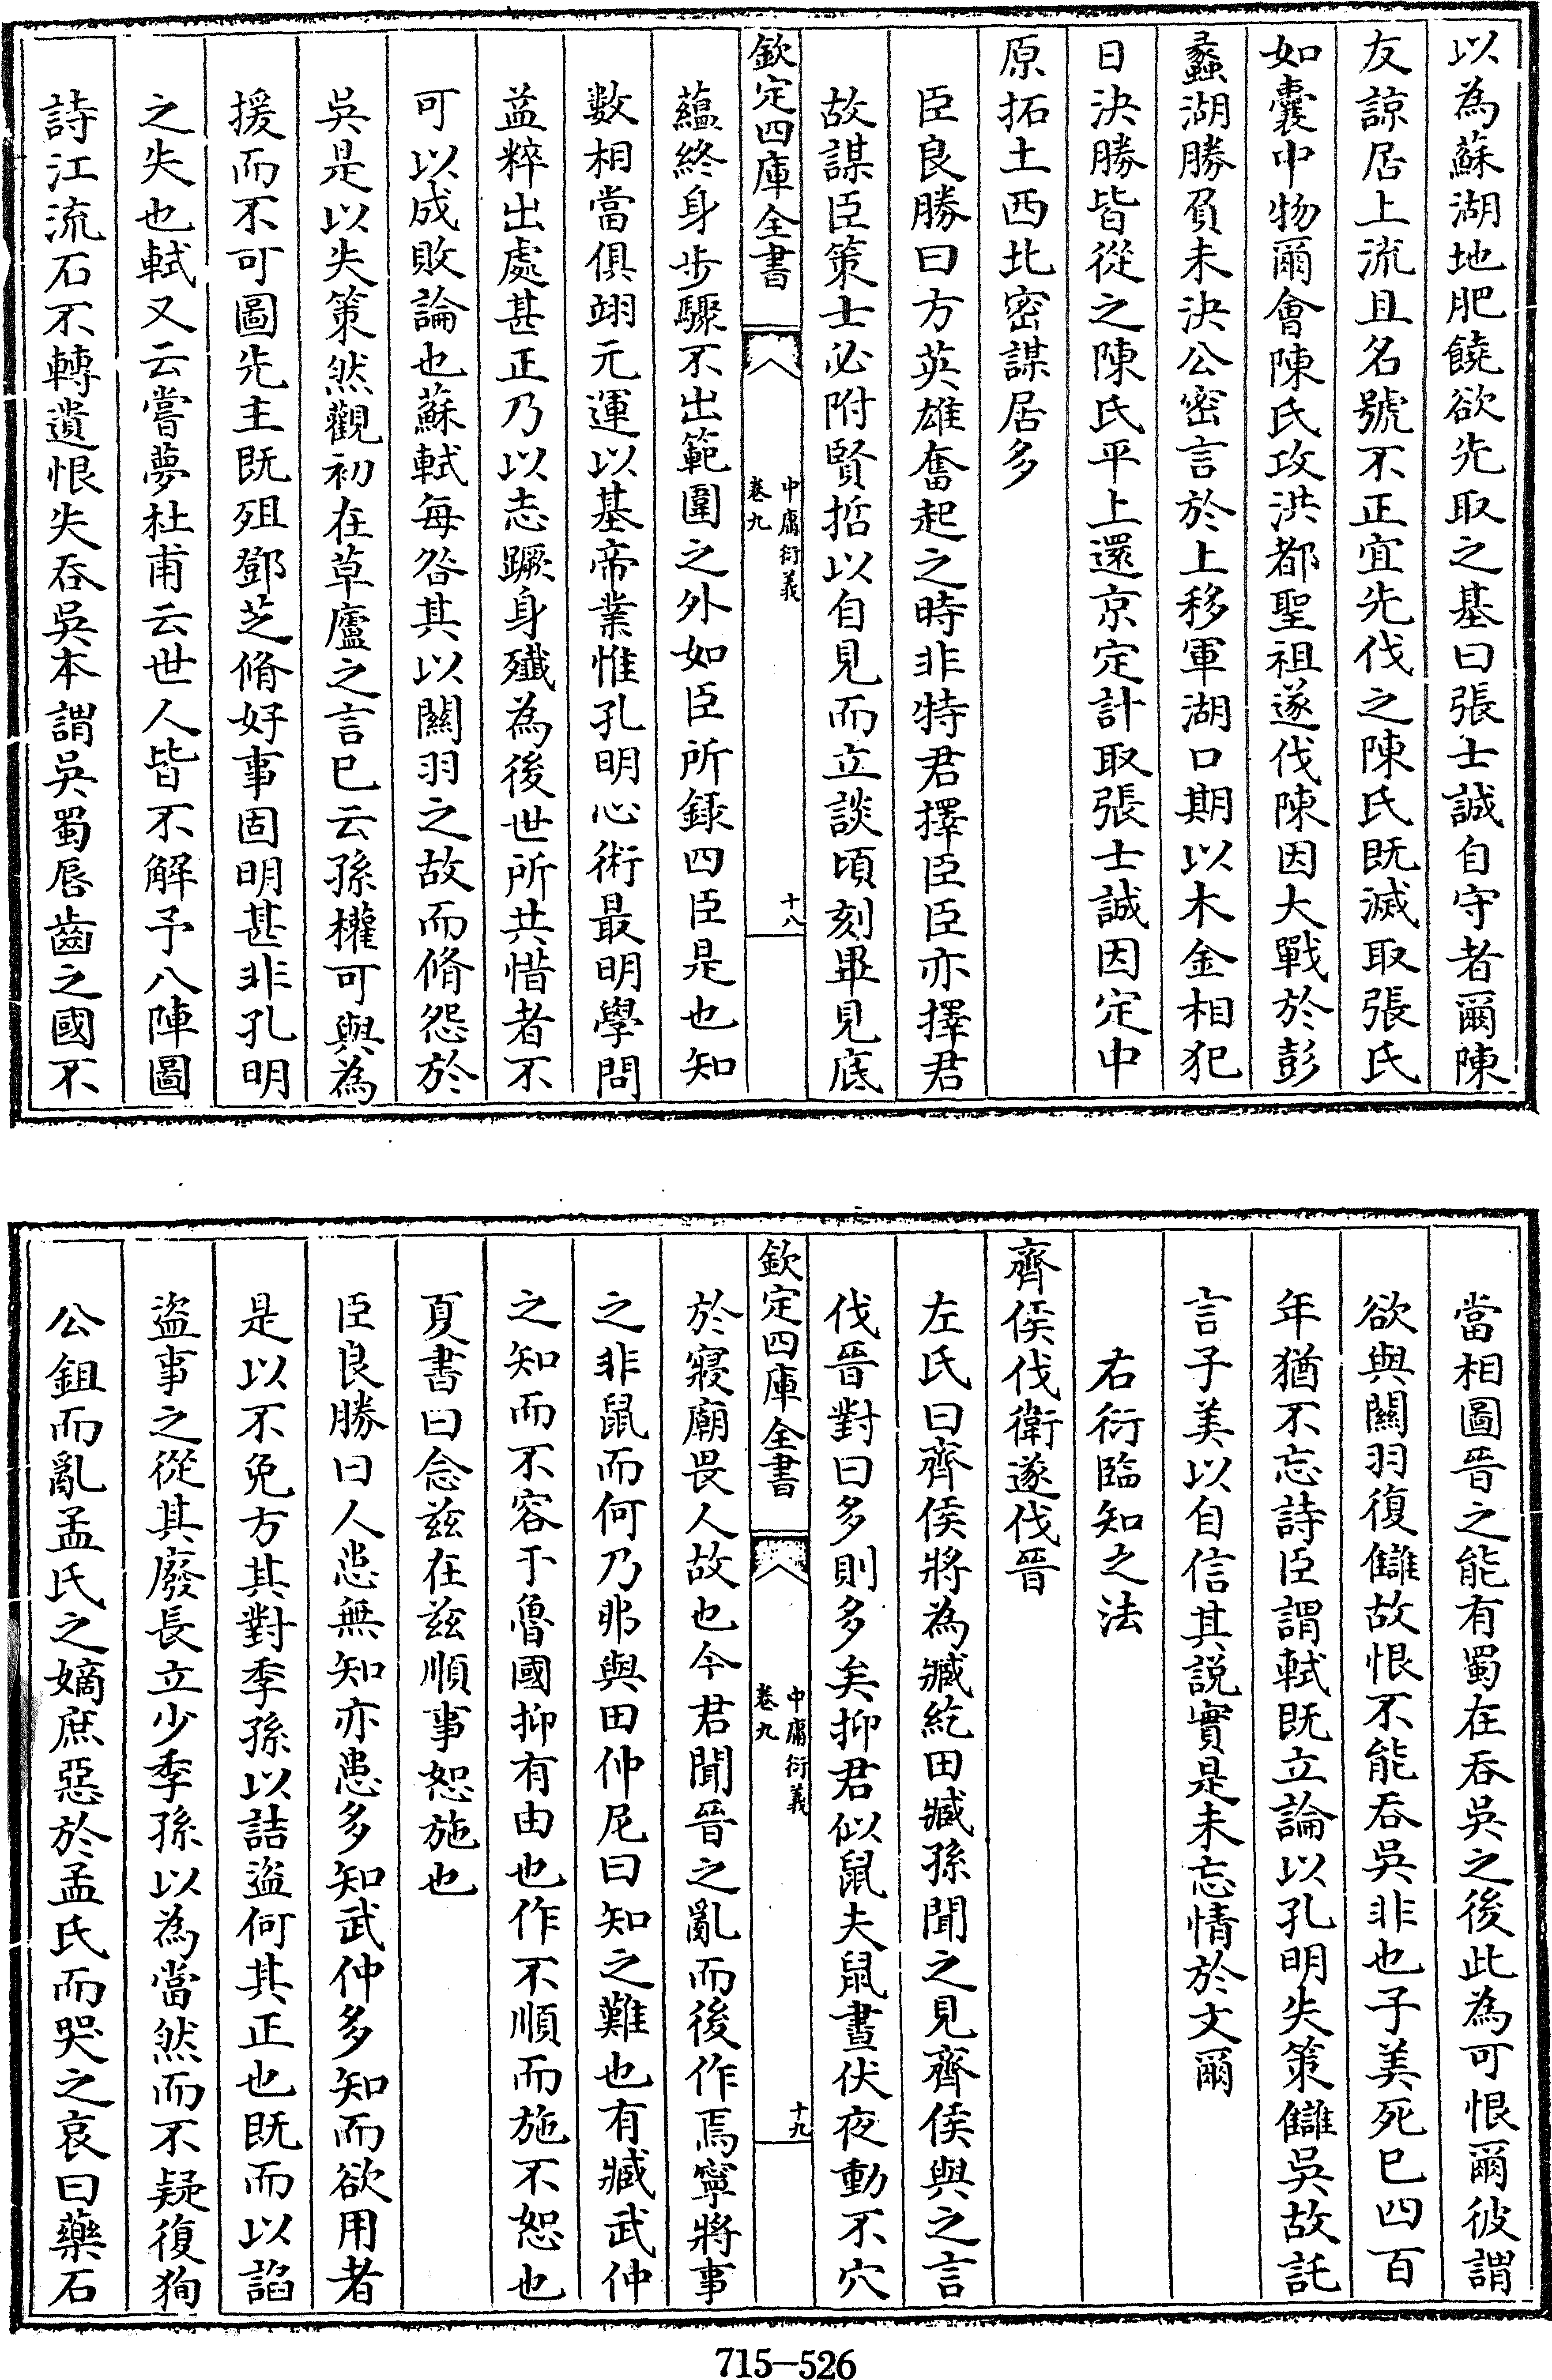 以為蘇湖地肥饒欲先取之基曰張士誠自守者爾陳
友諒居上流且名號不正宜先伐之陳氏既滅取張氏
如囊中物爾會陳氏攻洪都聖祖遂伐陳因大戰於彭
蠡湖勝負未決公密言於上移軍湖口期以木金相犯
日決勝皆從之陳氏平上還京定計取張士誠因定中
原拓土西北密謀居多
臣良勝曰方英雄奮起之時非特君擇臣臣亦擇君
故謀臣策士必附賢哲以自見而立談頃刻畢見底
欽定四庫全書
中庸衍義
卷九
十八
蘊終身步驟不出範圍之外如臣所録四臣是也知
数相當俱翊元運以基帝業惟孔明心術最明學問
益粹出處甚正乃以志蹶身殲為後世所共惜者不
可以成敗論也蘇軾每咎其以關羽之故而脩怨於
吳是以失策然觀初在草廬之言已云孫權可與為
援而不可圖先主既殂鄧芝脩好事固明甚非孔明
之失也軾又云嘗夢杜甫云世人皆不解予八陣圖
詩江流石不轉遺恨失吞吳本謂吳蜀唇齒之國不
當相圖晉之能有蜀在吞吳之後此為可恨爾彼謂
欲與關羽復讎故恨不能吞吳非也子美死已四百
年猶不忘詩臣謂軾既立論以孔明失策讎吳故託
言子美以自信其説實是未忘情於文爾
右衍臨知之法
齊侯伐衛遂伐晉
左氏曰齊侯將為臧紇田臧孫聞之見齊侯與之言
伐晉對曰多則多矣抑君似鼠夫鼠晝伏夜動不穴
欽定四庫全書
中庸衍義
卷九
十九
於寢廟畏人故也今君聞晉之亂而後作焉寧將事
之非鼠而何乃弗與田仲尼曰知之難也有臧武仲
之知而不容于魯國抑有由也作不順而施不恕也
夏書曰念兹在兹順事恕施也
臣良勝曰人患無知亦患多知武仲多知而欲用者
是以不免方其對季孫以詰盜何其正也既而以諂
盜事之從其廢長立少季孫以為當然而不疑復狥
公鉏而亂孟氏之嫡庶惡於孟氏而哭之哀曰藥石
715-526